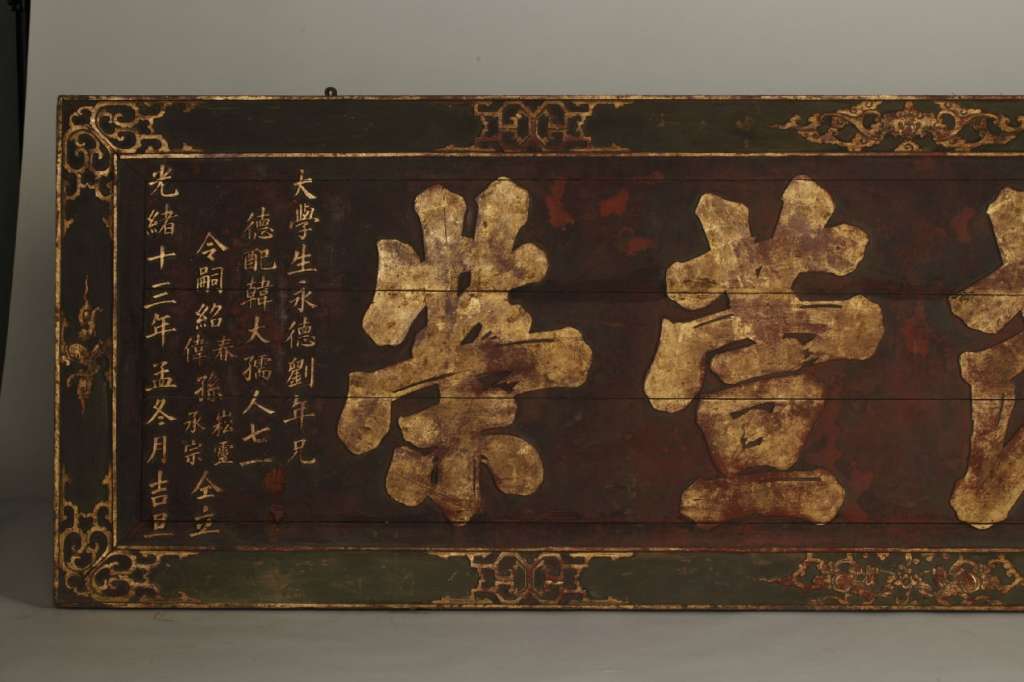 萱榮
大學生永德劉年兄
德配韓大孺人七一
令嗣紹春偉孫崧靈承宗仝立
光緒十三年孟冬月吉旦